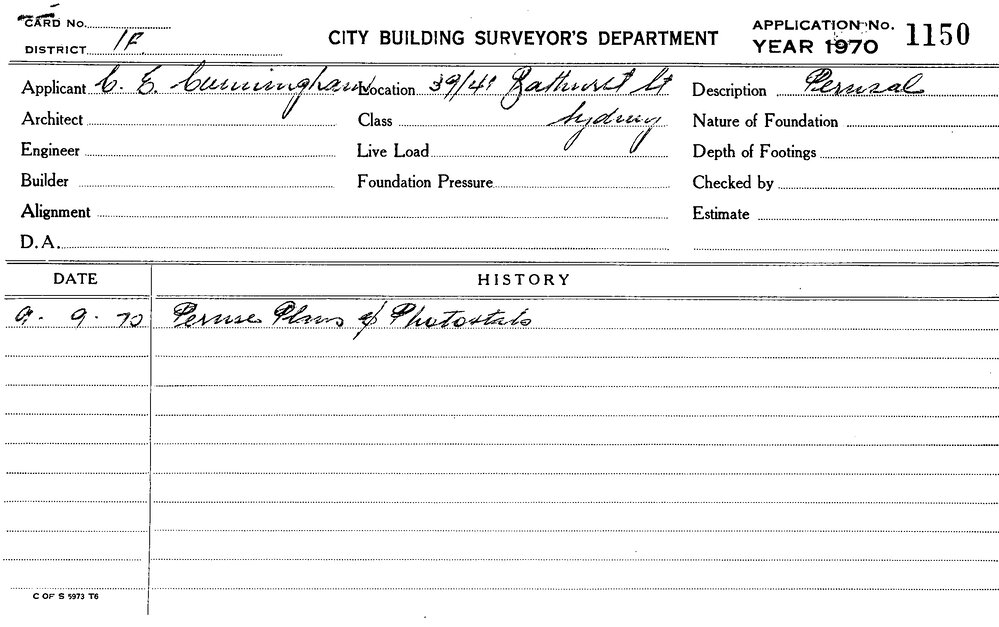 CARD No.
DISTRICT 1F.
CITY BUILDING SURVEYOR'S DEPARTMENT
APPLICATION No. 1150
YEAR 1970
Applicant C. E. Cunningham Location 39/41 Bathurst St Description Perusal
Architect Class Sydney Nature of Foundation
Engineer Live Load Depth of Footings
Builder Foundation Pressure Checked by
Alignment Estimate
D.A.
DATE HISTORY
9. 9. 70 Peruse Plans of Photostats
C OF S 5973 T6